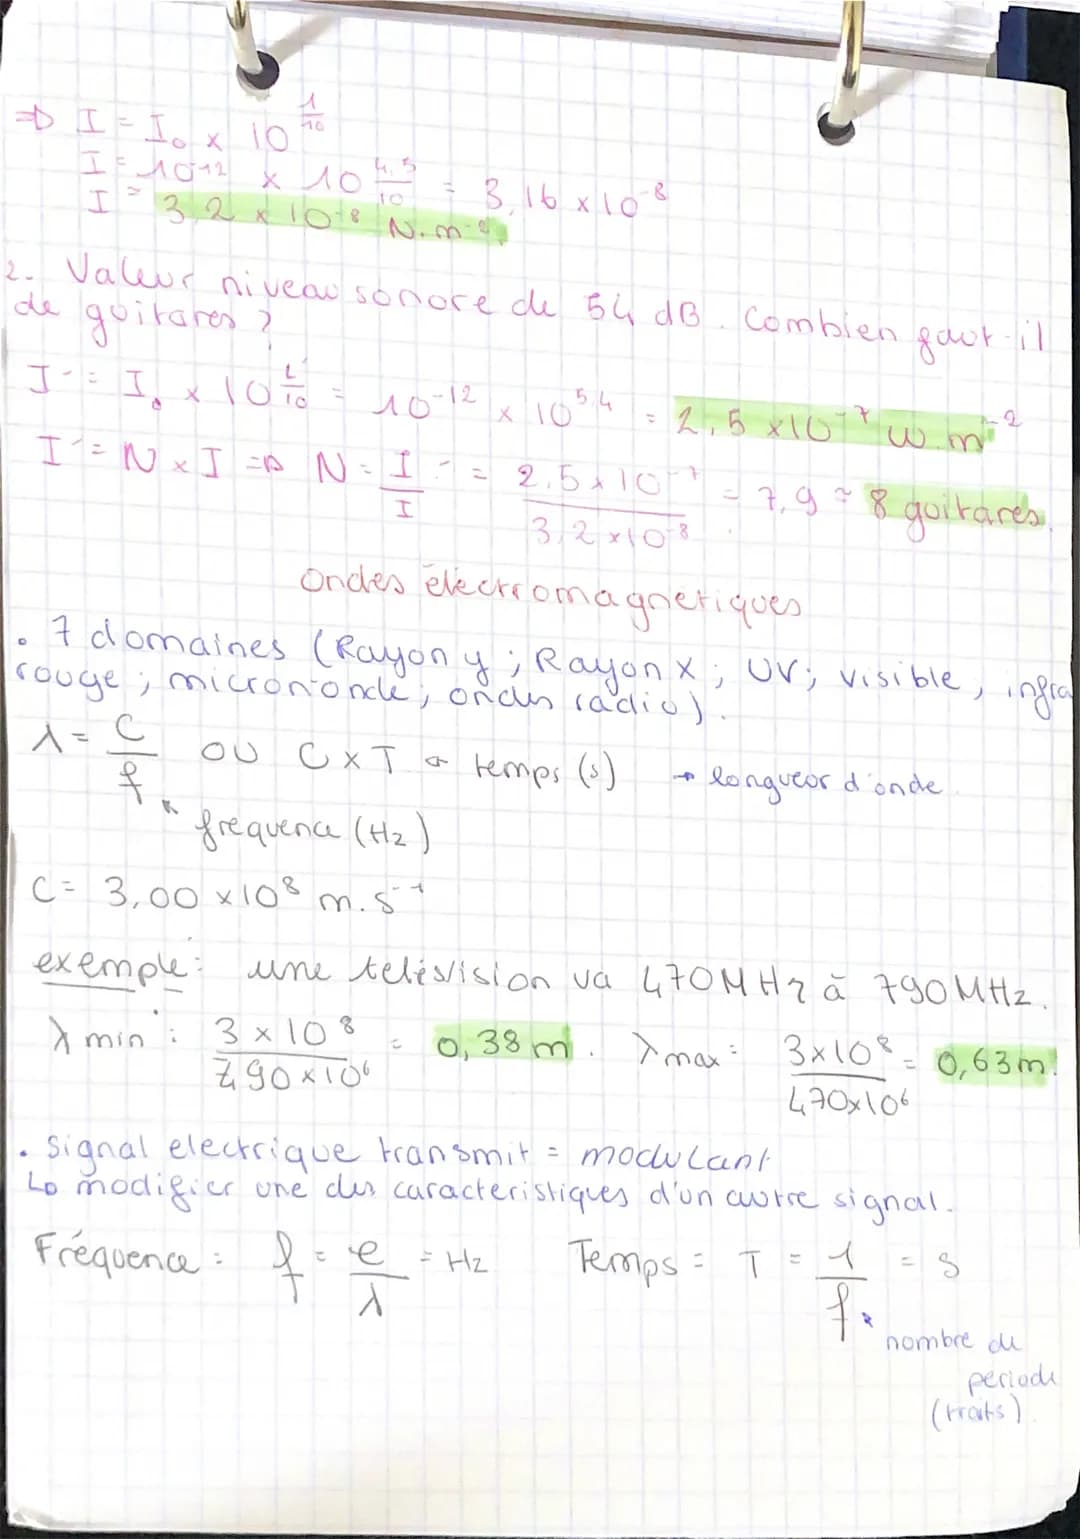 => I = I₀ x 10^(1/10)
I = 10^-12 x 10^(4.5/10) = 3,16 x 10^-8
I = 3,2 x 10^-8 N.m^-2.
2- Valeur niveau sonore de 54 dB. Combien faut-il
de guitares ?
I' = I₀ x 10^(L/10) = 10^-12 x 10^5,4 = 2,5 x10^-7 W.m^-2
I' = N x I => N = I'/I = 2,5 x 10^-7 / 3,2 x10^-8 = 7,9 ≈ 8 guitares.
Ondes électromagnetiques
• 7 domaines (Rayon y ; Rayon x ; UV ; visible ; infra
rouge ; micron-onde ; ondes radio).
λ = C/f OU C x T ← temps (s) → longueur d'onde.
↖ frequence (Hz)
C = 3,00 x10^8 m.s^-1
exemple : une télévision va 470MHz à 790MHz.
λ min : 3 x 10^8 / 790 x 10^6 = 0,38 m. λ max : 3x10^8 / 470x10^6 = 0,63m.
• Signal electrique transmit = modulant
↳ modifier une des caracteristiques d'un autre signal.
Fréquence : f = e/λ = Hz Temps = T = 1/f = s
nombre de
periode
(traits)